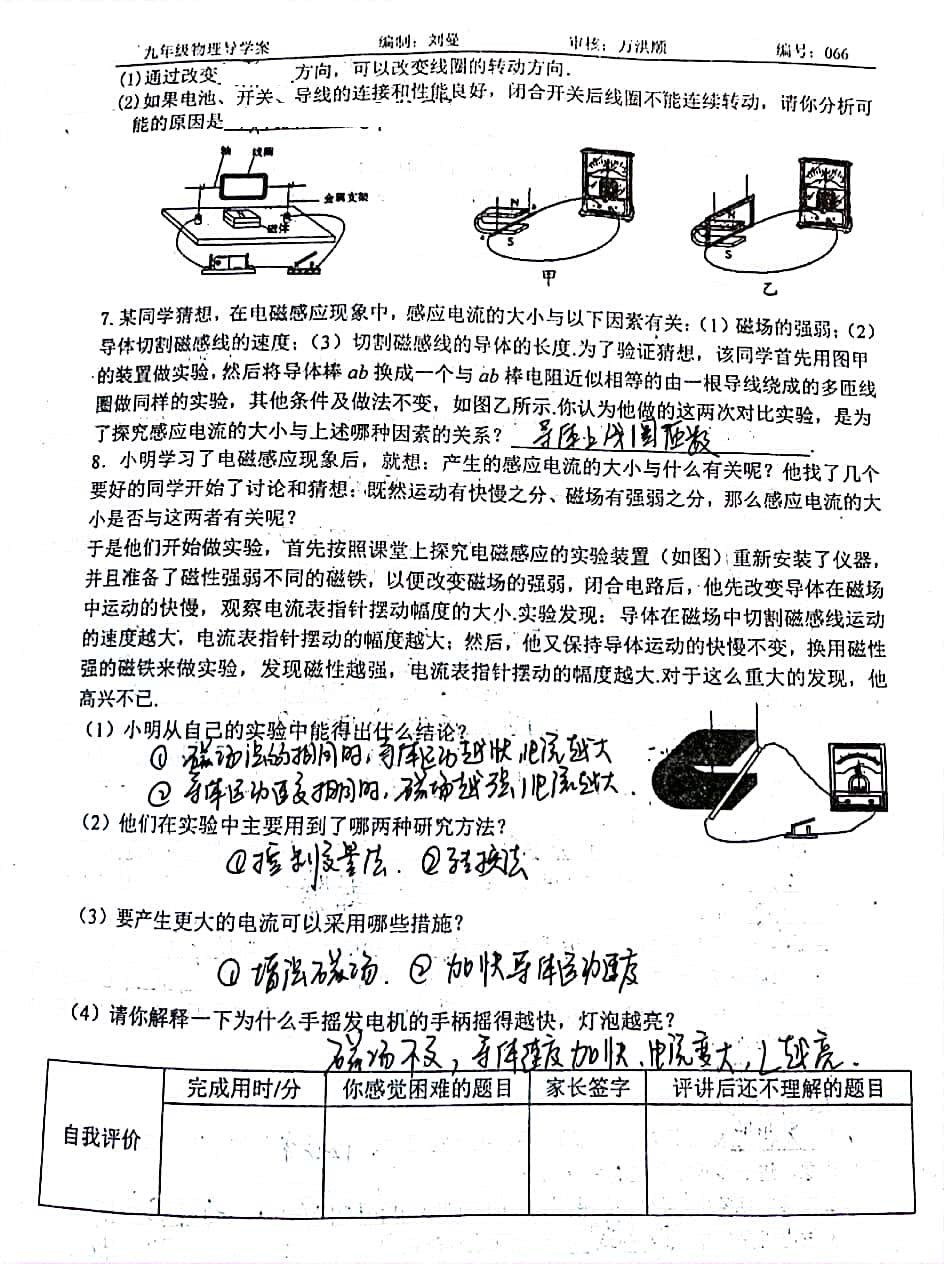 九年级物理导学案 编制：刘曼 审核：万洪顺 编号：066
(1)通过改变 方向，可以改变线圈的转动方向.
(2)如果电池、开关、导线的连接和性能良好，闭合开关后线圈不能连续转动，请你分析可
能的原因是
轴 线圈
金属支架
磁体
N
a
S
甲
N
S
乙
7.某同学猜想，在电磁感应现象中，感应电流的大小与以下因素有关：（1）磁场的强弱；（2）
导体切割磁感线的速度；（3）切割磁感线的导体的长度.为了验证猜想，该同学首先用图甲
的装置做实验，然后将导体棒 ab 换成一个与 ab 棒电阻近似相等的由一根导线绕成的多匝线
圈做同样的实验，其他条件及做法不变，如图乙所示.你认为他做的这两次对比实验，是为
了探究感应电流的大小与上述哪种因素的关系？ 导体 线圈匝数
8．小明学习了电磁感应现象后，就想：产生的感应电流的大小与什么有关呢？他找了几个
要好的同学开始了讨论和猜想：既然运动有快慢之分、磁场有强弱之分，那么感应电流的大
小是否与这两者有关呢？
于是他们开始做实验，首先按照课堂上探究电磁感应的实验装置（如图）重新安装了仪器，
并且准备了磁性强弱不同的磁铁，以便改变磁场的强弱，闭合电路后，他先改变导体在磁场
中运动的快慢，观察电流表指针摆动幅度的大小.实验发现：导体在磁场中切割磁感线运动
的速度越大，电流表指针摆动的幅度越大；然后，他又保持导体运动的快慢不变，换用磁性
强的磁铁来做实验，发现磁性越强，电流表指针摆动的幅度越大.对于这么重大的发现，他
高兴不已.
（1）小明从自己的实验中能得出什么结论？
① 磁场强弱相同时，导体运动越快，电流越大
② 导体运动速度相同时，磁场越强，电流越大．
（2）他们在实验中主要用到了哪两种研究方法？
①控制变量法．②转换法
（3）要产生更大的电流可以采用哪些措施？
① 增强磁场．② 加快导体运动速度
（4）请你解释一下为什么手摇发电机的手柄摇得越快，灯泡越亮？
磁场不变，导体速度加快，电流变大，L越亮．
自我评价 完成用时/分 你感觉困难的题目 家长签字 评讲后还不理解的题目